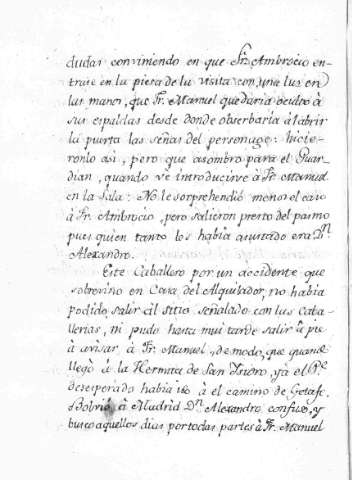 dudas conviniendo en que Fr. Ambrocio en-
trase en la pieza de la visita con una luz en
las manos, que Fr. Manuel quedaria oculto à
sus espaldas desde donde observaria àl abrir
la puerta las señas del personage: hicie-
ronlo asi, pero que asombro para el Guar-
dian, quando ve introducirse à Fr. Manuel
en la Sala: No le sorprehendiò menos el caso
à Fr. Ambrocio, pero salieron presto del pasmo
pues quien tanto los habia asustado era Dn.
Alexandro.
Este Caballero por un accidente que
sobrevino en Casa del Alquilador, no habia
podido salir àl sitio señalado con las Caba-
llerias, ni pudo hasta mui tarde salir à pie
à avisar à Fr. Manuel, de modo, que quando
llegò à la Hermita de San Ysidro, yà el Pe.
desesperado habia ido à el camino de Getafe.
Bolviò à Madrid Dn. Alexandro confuso, y
busco aquellos dias por todas partes à Fr. Manuel